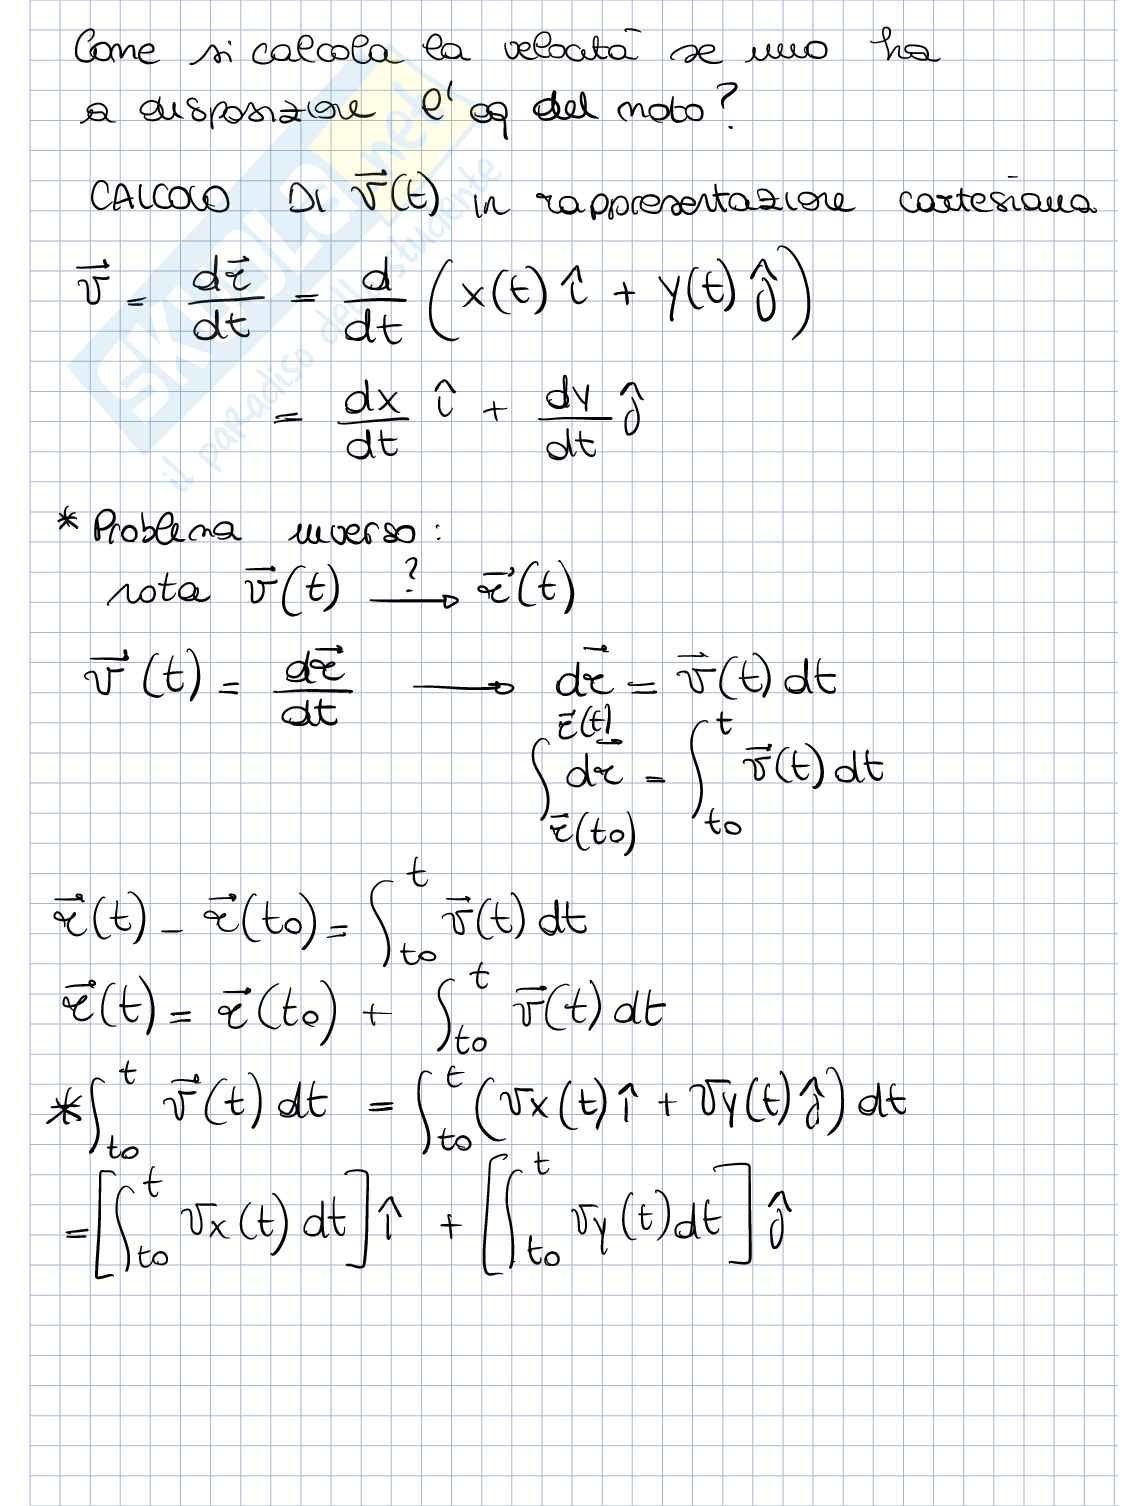 Come si calcola la velocità se uno ha
a disposizione l'eq del moto?
CALCOLO DI v⃗(t) in rappresentazione cartesiana
v⃗ = dr⃗/dt = d/dt (x(t) î + y(t) ĵ)
= dx/dt î + dy/dt ĵ
* Problema inverso:
nota v⃗(t) —?→ r⃗(t)
v⃗(t) = dr⃗/dt → dr⃗ = v⃗(t) dt
∫_{r⃗(t0)}^{r⃗(t)} dr⃗ = ∫_{t0}^{t} v⃗(t) dt
r⃗(t) - r⃗(t0) = ∫_{t0}^{t} v⃗(t) dt
r⃗(t) = r⃗(t0) + ∫_{t0}^{t} v⃗(t) dt
* ∫_{t0}^{t} v⃗(t) dt = ∫_{t0}^{t} (vx(t) î + vy(t) ĵ) dt
= [∫_{t0}^{t} vx(t) dt] î + [∫_{t0}^{t} vy(t) dt] ĵ
SKUOLA.net
il paradiso dello studente